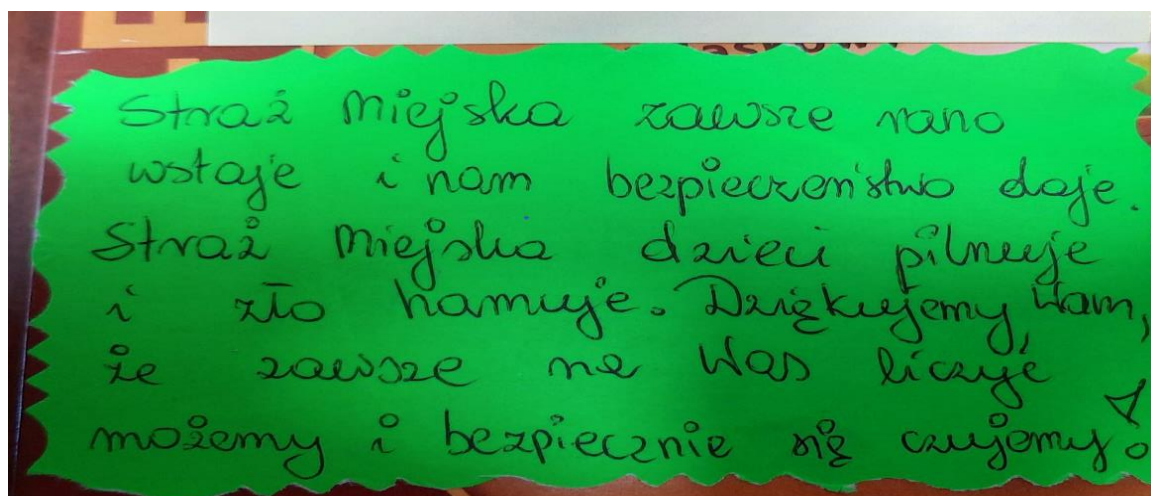 Straż Miejska zawsze rano
wstaje i nam bezpieczeństwo daje.
Straż Miejska dzieci pilnuje
i zło hamuje. Dziękujemy Wam,
że zawsze na Was liczyć
możemy i bezpiecznie się czujemy!